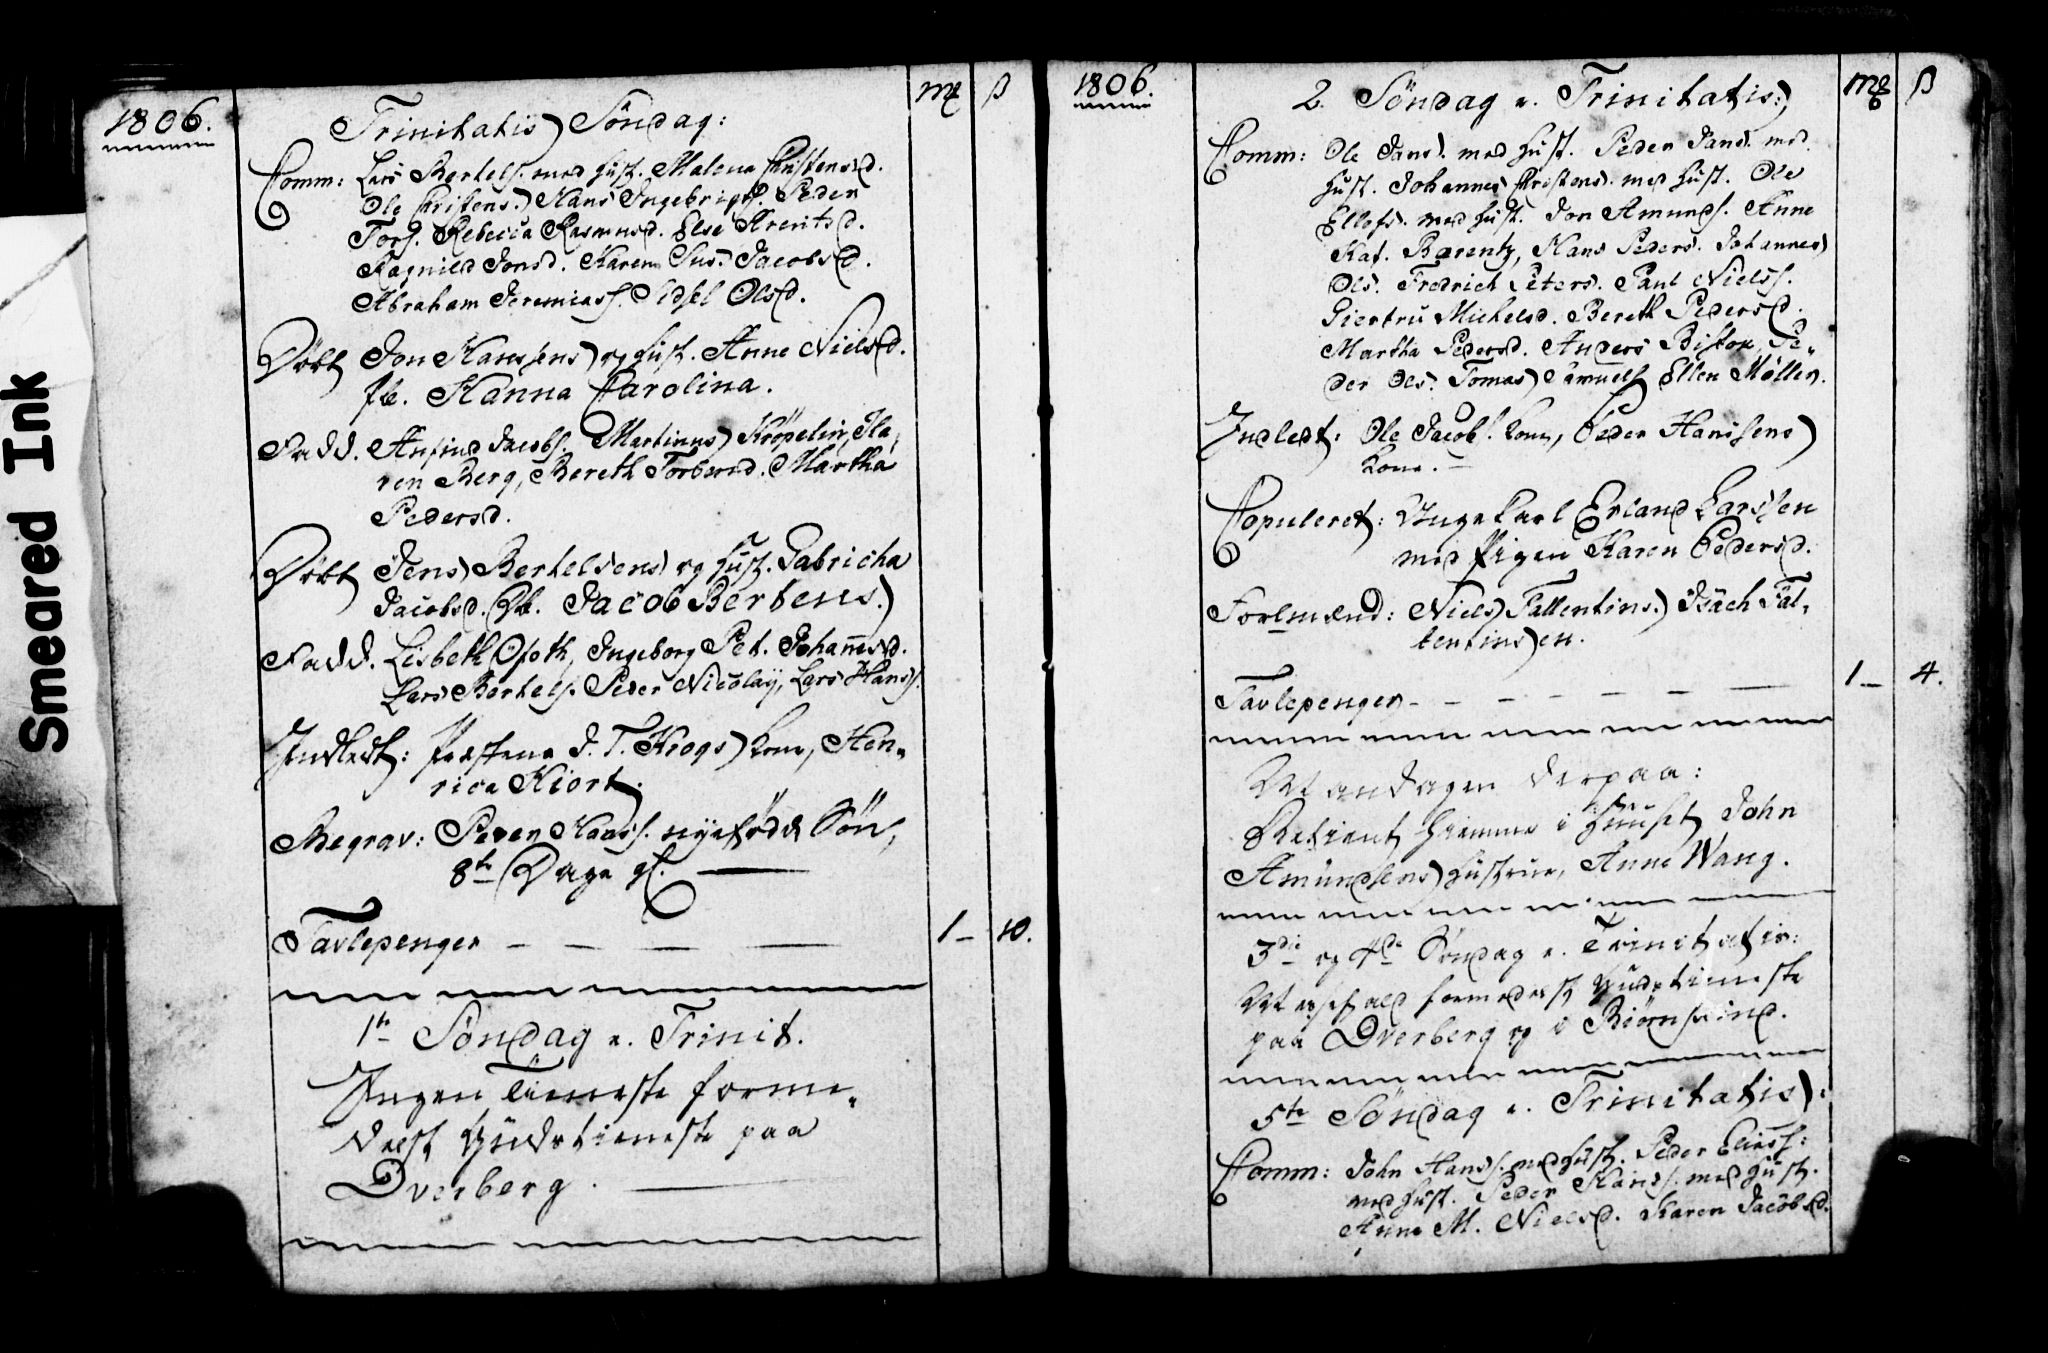 Smeared Ink
1806.
Trinitatis Søndag:
mk
ß
Comm: Lars Bertels. med Hust. Malena Christensd.
Ole Christens. Hans Ingebrigts. Peder
Tors. Rebecca Rasmusd. Else Arentsd.
Ragnild Jonsd. Karen Sus. Jacobsd.
Abraham Jeremiass. Sidsel Olsd.
Döbt Jon Hanssens og Hust. Anne Nielsd.
fb. Hanna Carolina.
Fadd. Anfind Jacobs. Martinus Kröpelin,
Berg, Bereth Torbersd. Martha
Pedersd.
Döbt Jens Bertelsens og Hust. Gabricha
Jacobsd. Db. Jacob Bertens.
Fadd. Lisbeth Ofoth, Ingeborg Pet. Johannesd.
Lars Bertels. Peder Nicolaÿ, Lars Hanss.
Indledt: D. T. Krogs Kone, Hen-
rica Hiort.
Begrav: Peder Hanss. nÿefödde Sön,
8te Dage gl.
Tavlepenger — — — —
1 —
10.
1te Söndag e. Trinit.
Ingen Tieneste forme-
delst Gudstieneste paa
Dverberg.
1806.
2. Söndag e. Trinitatis:
mk
ß
Comm: Ole Jans. med Hust. Peder Jans. med
Hust. Johannes Christens. med Hust. Ole
Ellefs. med Hust. Jon Amunds. Anne
Kat. Barentz, Hans Peders. Johannes
Ols. Fredrich Peters. Paul Nielss.
Giertru Michelsd. Bereth Pedersd.
Martha Pedersd. Anders Biskop, Pe-
der Ols. Tomas Samuels. Ellen Möller.
Indledt: Ole Jacobs. Kone, Peder Hanssens
Kone. —
Copuleret: Ungekarl Erland Larssen
med Pigen Karen Pedersd.
Forlmænd: Niels Fallentins. Isach Fal-
lentinsen.
Tavlepenger - - - - - —
1 —
4.
Mandagen derpaa:
Betient Hiemme i Huuset, John
Amundsens Hustrue, Anne Wang.
3die og 4de Söndag e. Trinitatis:
Messefald formedelst Gudstieneste
paa Dverberg og i Biörnskind.
5te Söndag e. Trinitatis:
Comm: John Hanss. med Hust. Peder Eliass:
med Hust. Peder Hanss. med Hust.
Anne M. Nielsd. Karen Jacobsd.